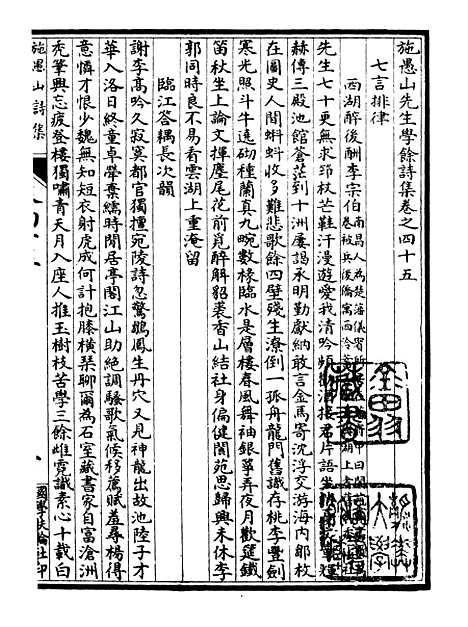 施愚山先生學餘詩集卷之四十五
七言排律
西湖醉後酬李宗伯
先生七十更無求笻杖芒鞋汗漫遊愛我清吟頻
赫傳三殿池館蒼茫到十洲屢謁承明勤獻納敢言金馬寄沈浮交游海內鄒枚
在圖史人間蝌蚪收多難悲歌餘四壁殘生潦倒一孤舟龍門舊識存桃李豐劍
寒光照斗牛遶砌種蘭真九畹數椽臨水是層樓春風舞袖銀箏弄夜月歡筵鐵
笛秋坐上論文揮麈尾花前覓醉解貂裘香山結社身偏健閬苑思歸興未休李
郭同時良不易看雲湖上重淹留
臨江答耦長次韻
謝李高吟久寂寞都官獨擅宛陵詩忽驚鷃鳳生丹穴又見神龍出故池陸子才
華入洛日終童卓犖棄繻時閒居亭閣江山助絕調騷歌氣候移蕙賦羞尋楊得
意憐才恨少魏無知短衣射虎成何計抱膝橫琴聊爾為石室藏書家自富滄洲
禿筆興忘疲登樓獨嘯青天月入座人推玉樹枝苦學三餘雄霓識素心十載白
施愚山詩集
國學扶輪社印